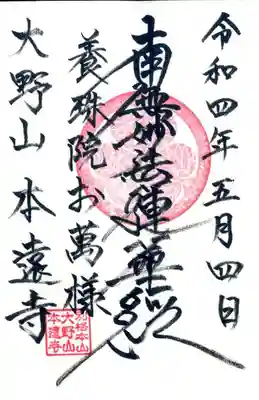 令和四年五月四日
南無妙法蓮華経
養珠院お萬様
大野山 本遠寺
別格本山
大野山
本遠寺